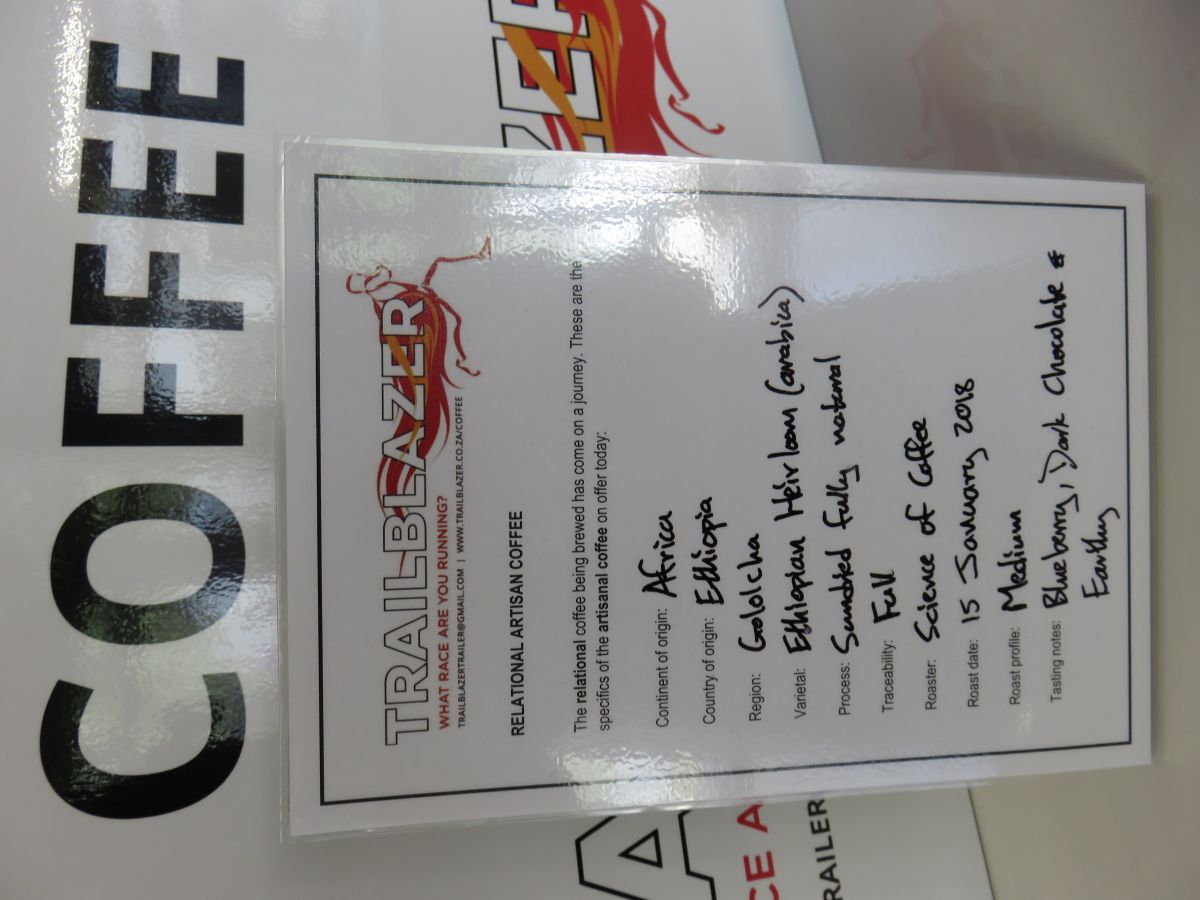 COFFEE
TRAILBLAZER
WHAT RACE ARE YOU RUNNING?
TRAILBLAZERTRAILER@GMAIL.COM | WWW.TRAILBLAZER.CO.ZA/COFFEE
RELATIONAL ARTISAN COFFEE
The relational coffee being brewed has come on a journey. These are the
specifics of the artisanal coffee on offer today:
Continent of origin: Africa
Country of origin: Ethiopia
Region: Gololcha
Varietal: Ethiopian Heirloom (arabica)
Process: Sundried fully natural
Traceability: Full
Roaster: Science of Coffee
Roast date: 15 January 2018
Roast profile: Medium
Tasting notes: Blueberry, Dark Chocolate &
Earthy
A ZER
CE A
RAILER